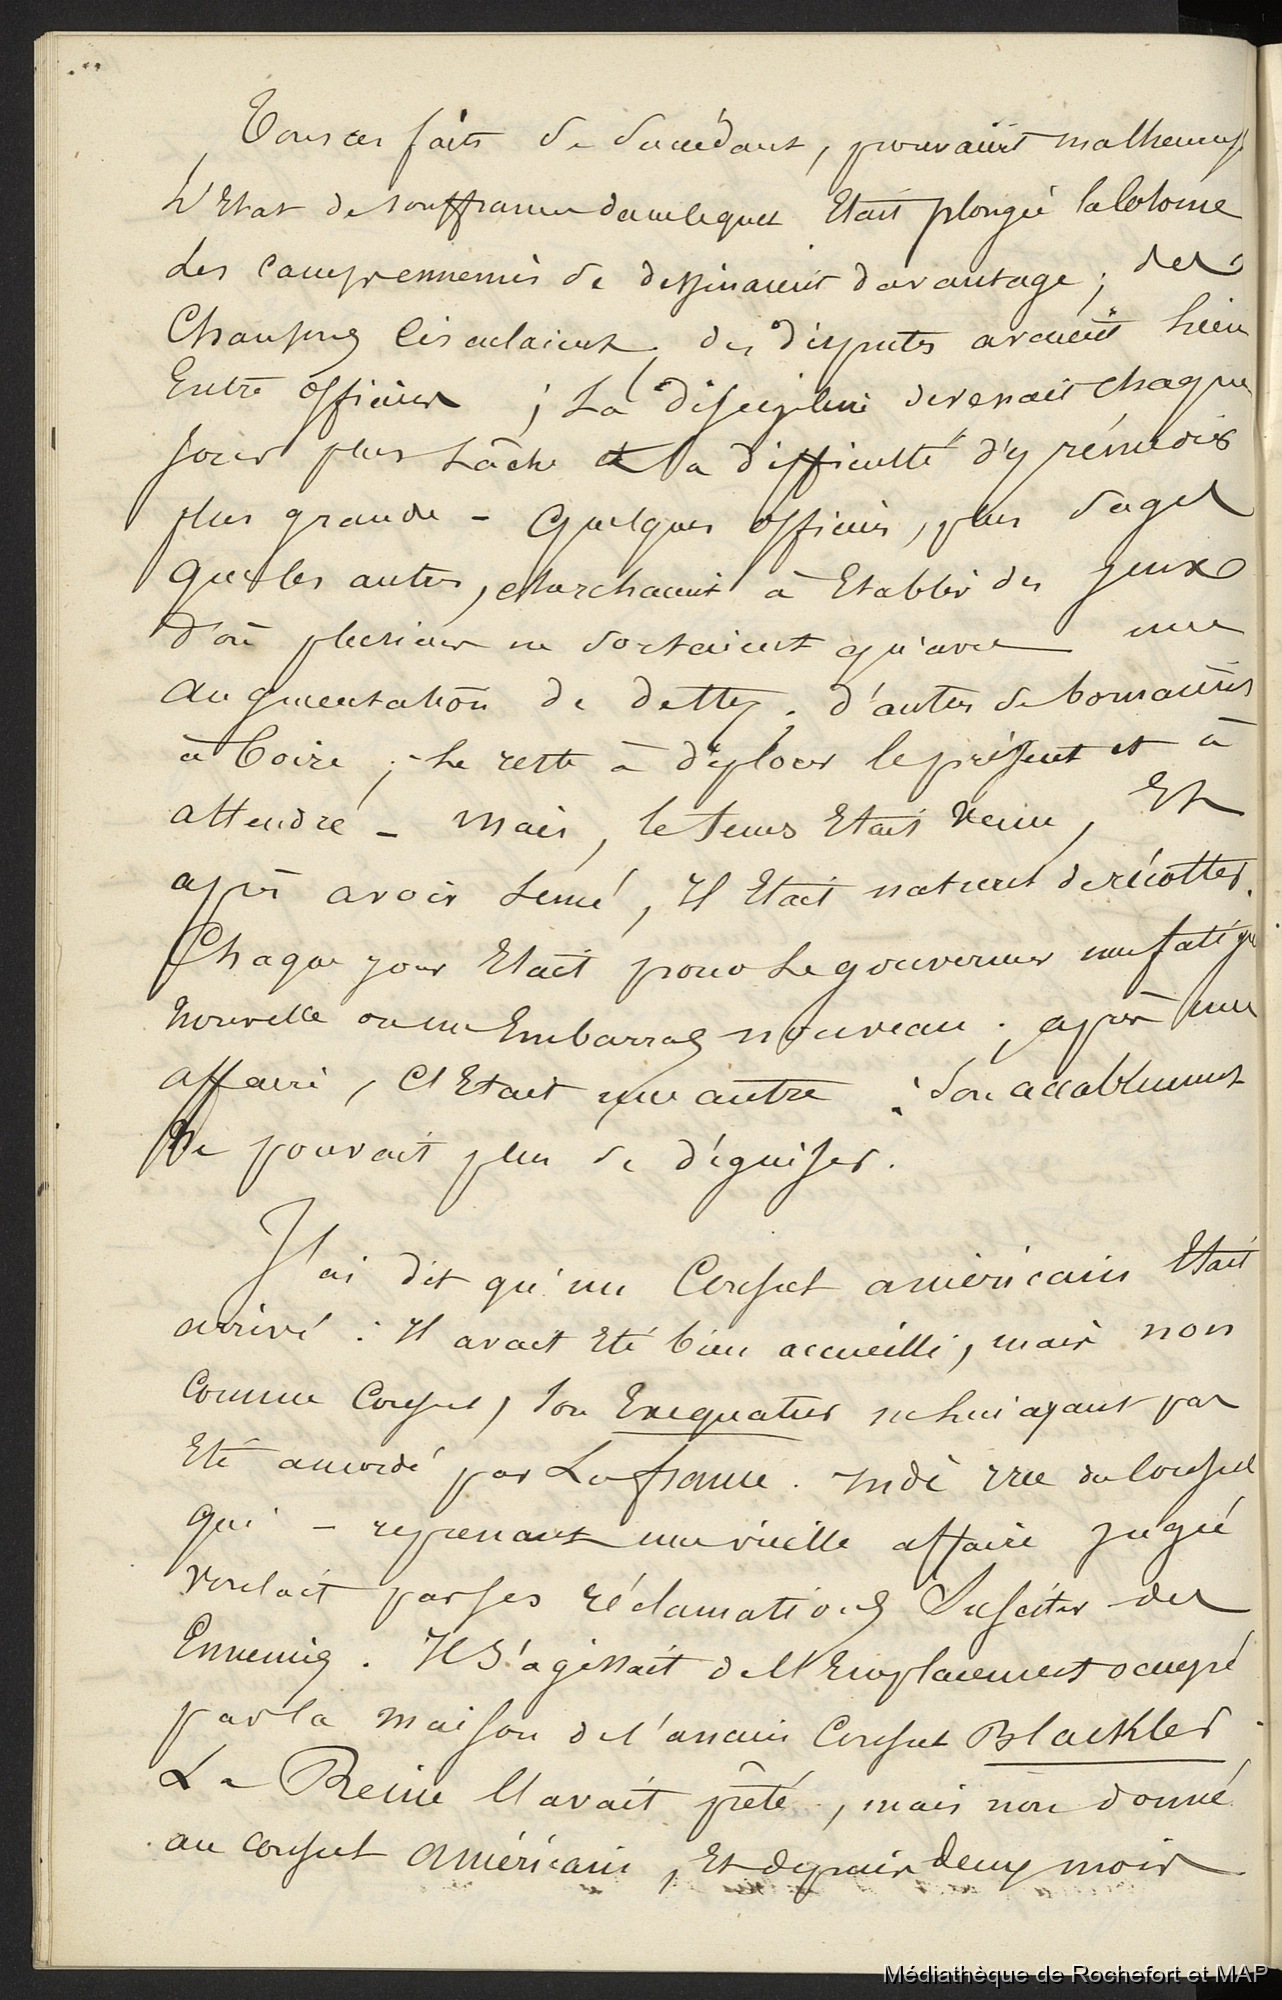 Tous ces faits se succédant, prouvaient malheureus.
L'Etat de souffrance dans lequel Etait plongée la Colonie
Les camps ennemis se dessinaient davantage ; des
Chansons circulaient, des disputes avaient lieu
Entre officiers ; La discipline devenait chaque
jour plus Lâche et la difficulté d'y rémédier
plus grande - Quelques officiers, plus sages
que les autres, cherchaient à Etablir des jeux
d'où plusieurs ne sortaient qu'avec une
augmentation de dettes ; d'autres se bornaient
à boire ; Le reste à déplorer le présent et à
attendre - Mais, le tems Etait venu, Et
après avoir semé, Il Etait naturel de récolter.
Chaque jour Etait pour Le gouverneur une fatigue
nouvelle ou un Embarras nouveau ; après une
affaire, C'Etait une autre ; Son accablement
Ne pouvait plus se déguiser.
J'ai dit qu'un Consul américain Etait
arrivé : Il avait Eté bien accueilli, mais non
comme Consul, son Exequatur ne lui ayant pas
Eté accordé par La france. Indè iræ du Consul
qui - reprenant une vieille affaire jugée
voulait par ses réclamations Susciter des
Ennemis. Il S'agissait de l'Emplacement occupé
par la maison de l'ancien Consul Blackler.
La Reine l'avait prêté, mais non donné
au consul américain, Et depuis deux mois
Médiathèque de Rochefort et MAP